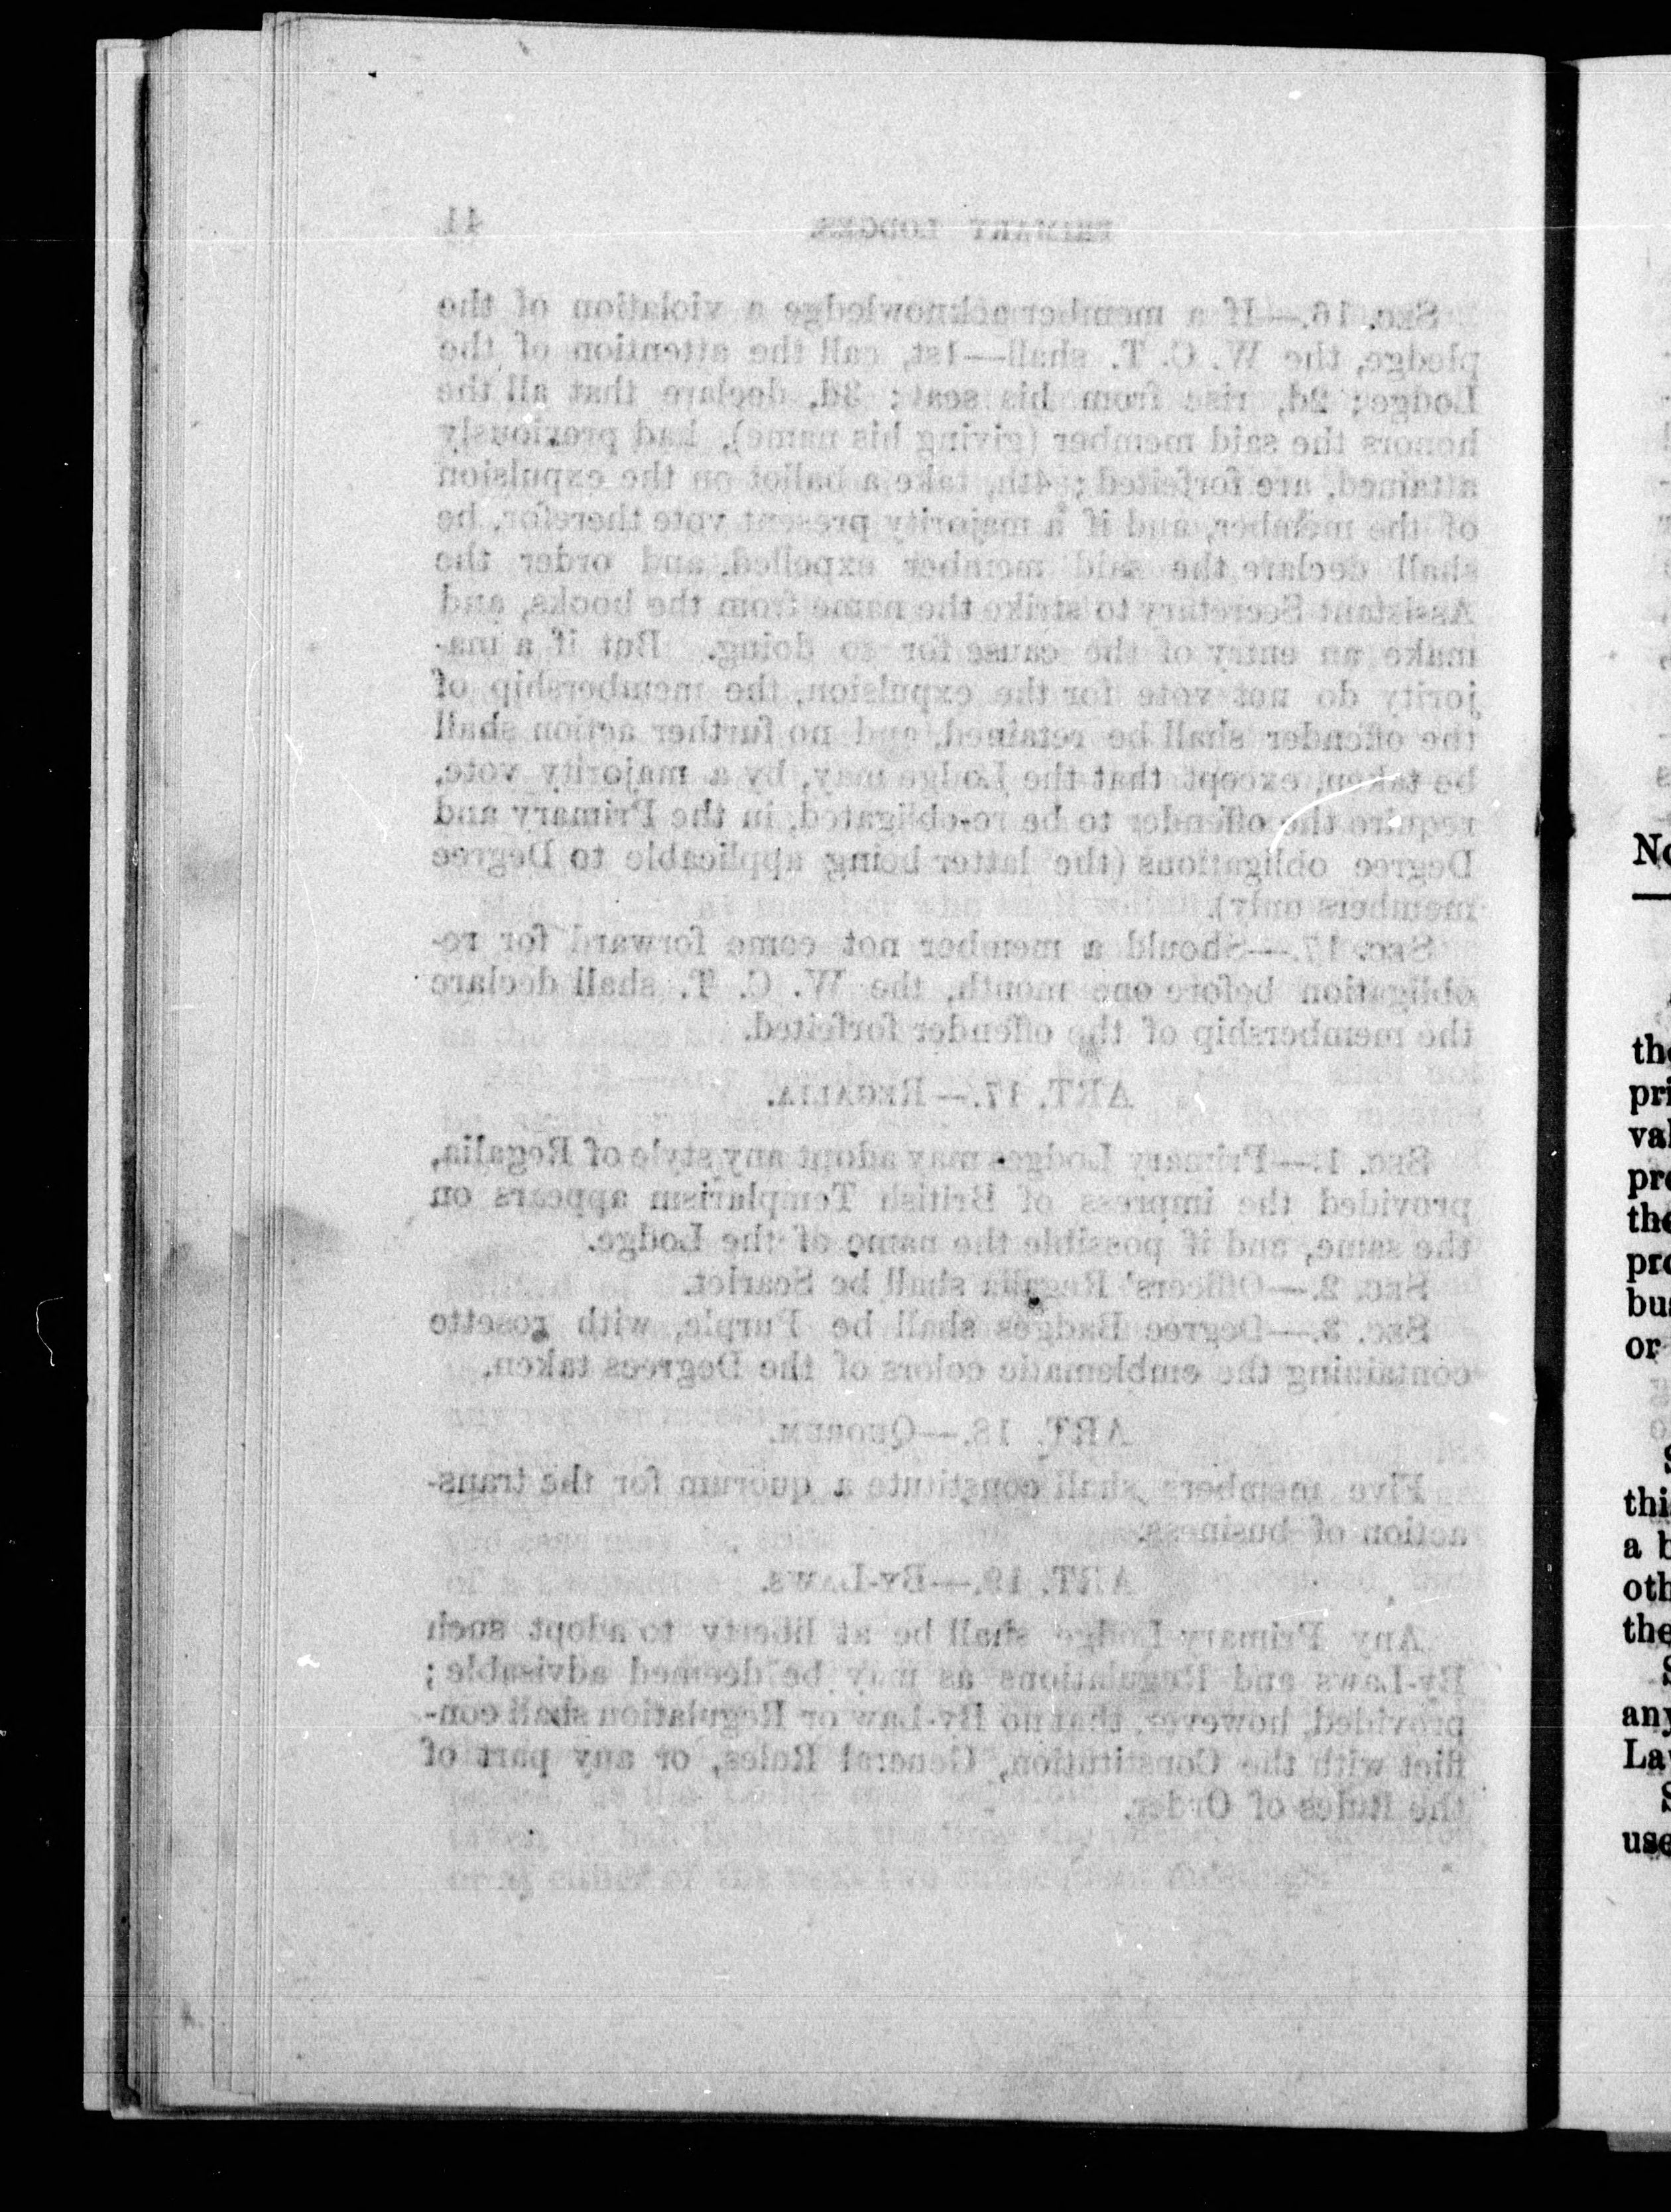 PRIMARY LODGES. 41
SEC. 16.—If a member acknowledge a violation of the
pledge, the W. C. T. shall—1st, call the attention of the
Lodge; 2d, rise from his seat; 3d, declare that all the
honors the said member (giving his name), had previously
attained, are forfeited; 4th, take a ballot on the expulsion
of the member, and if a majority present vote therefor, he
shall declare the said member expelled, and order the
Assistant Secretary to strike the name from the books, and
make an entry of the cause for so doing. But if a ma-
jority do not vote for the expulsion, the membership of
the offender shall be retained, and no further action shall
be taken, except that the Lodge may, by a majority vote,
require the offender to be re-obligated, in the Primary and
Degree obligations (the latter being applicable to Degree
members only).
SEC. 17.—Should a member not come forward for re-
obligation before one month, the W. C. T. shall declare
the membership of the offender forfeited.
ART. 17.—REGALIA.
SEC. 1.—Primary Lodges may adopt any style of Regalia,
provided the impress of British Templarism appears on
the same, and if possible the name of the Lodge.
SEC. 2.—Officers' Regalia shall be Scarlet.
SEC. 3.—Degree Badges shall be Purple, with rosette
containing the emblematic colors of the Degrees taken.
ART. 18.—QUORUM.
Five members shall constitute a quorum for the trans-
action of business.
ART. 19.—BY-LAWS.
Any Primary Lodge shall be at liberty to adopt such
By-Laws and Regulations as may be deemed advisable;
provided, however, that no By-Law or Regulation shall con-
flict with the Constitution, General Rules, or any part of
the Rules of Order.
No
the
pri
val
pro
the
pro
bus
or
S
thi
a b
oth
the
S
any
La
S
use